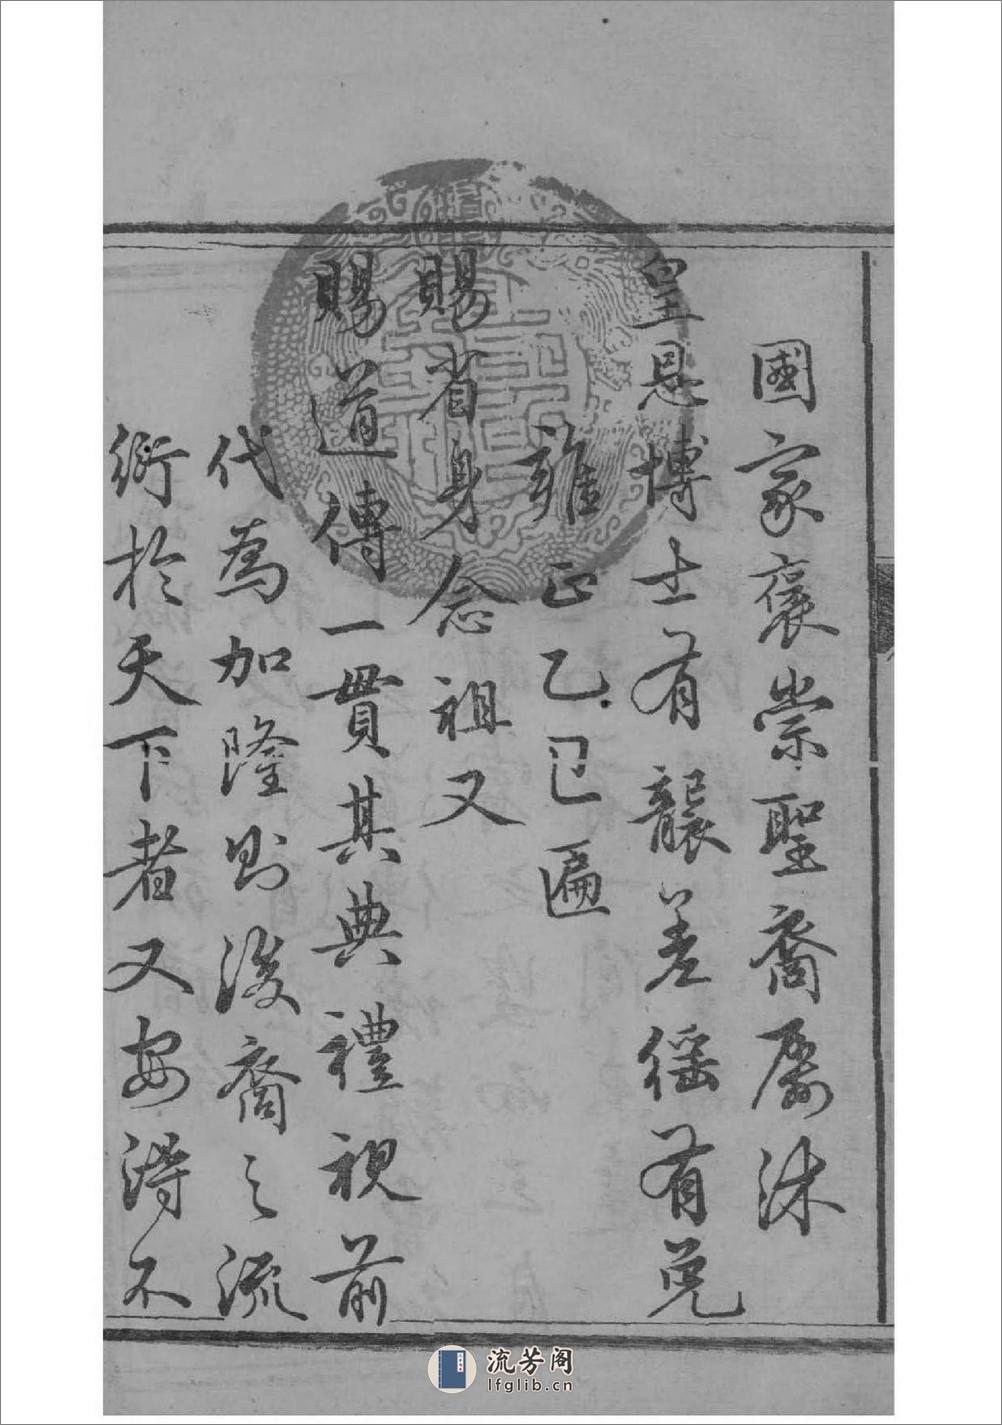 國家褒崇聖裔屢沐
皇恩博士有襲差徭有免
雍正乙巳匾
賜省身念祖又
賜道傳一貫其典禮視前
代為加隆則後裔之流
衍於天下者又安得不
流芳阁
lfglib.cn